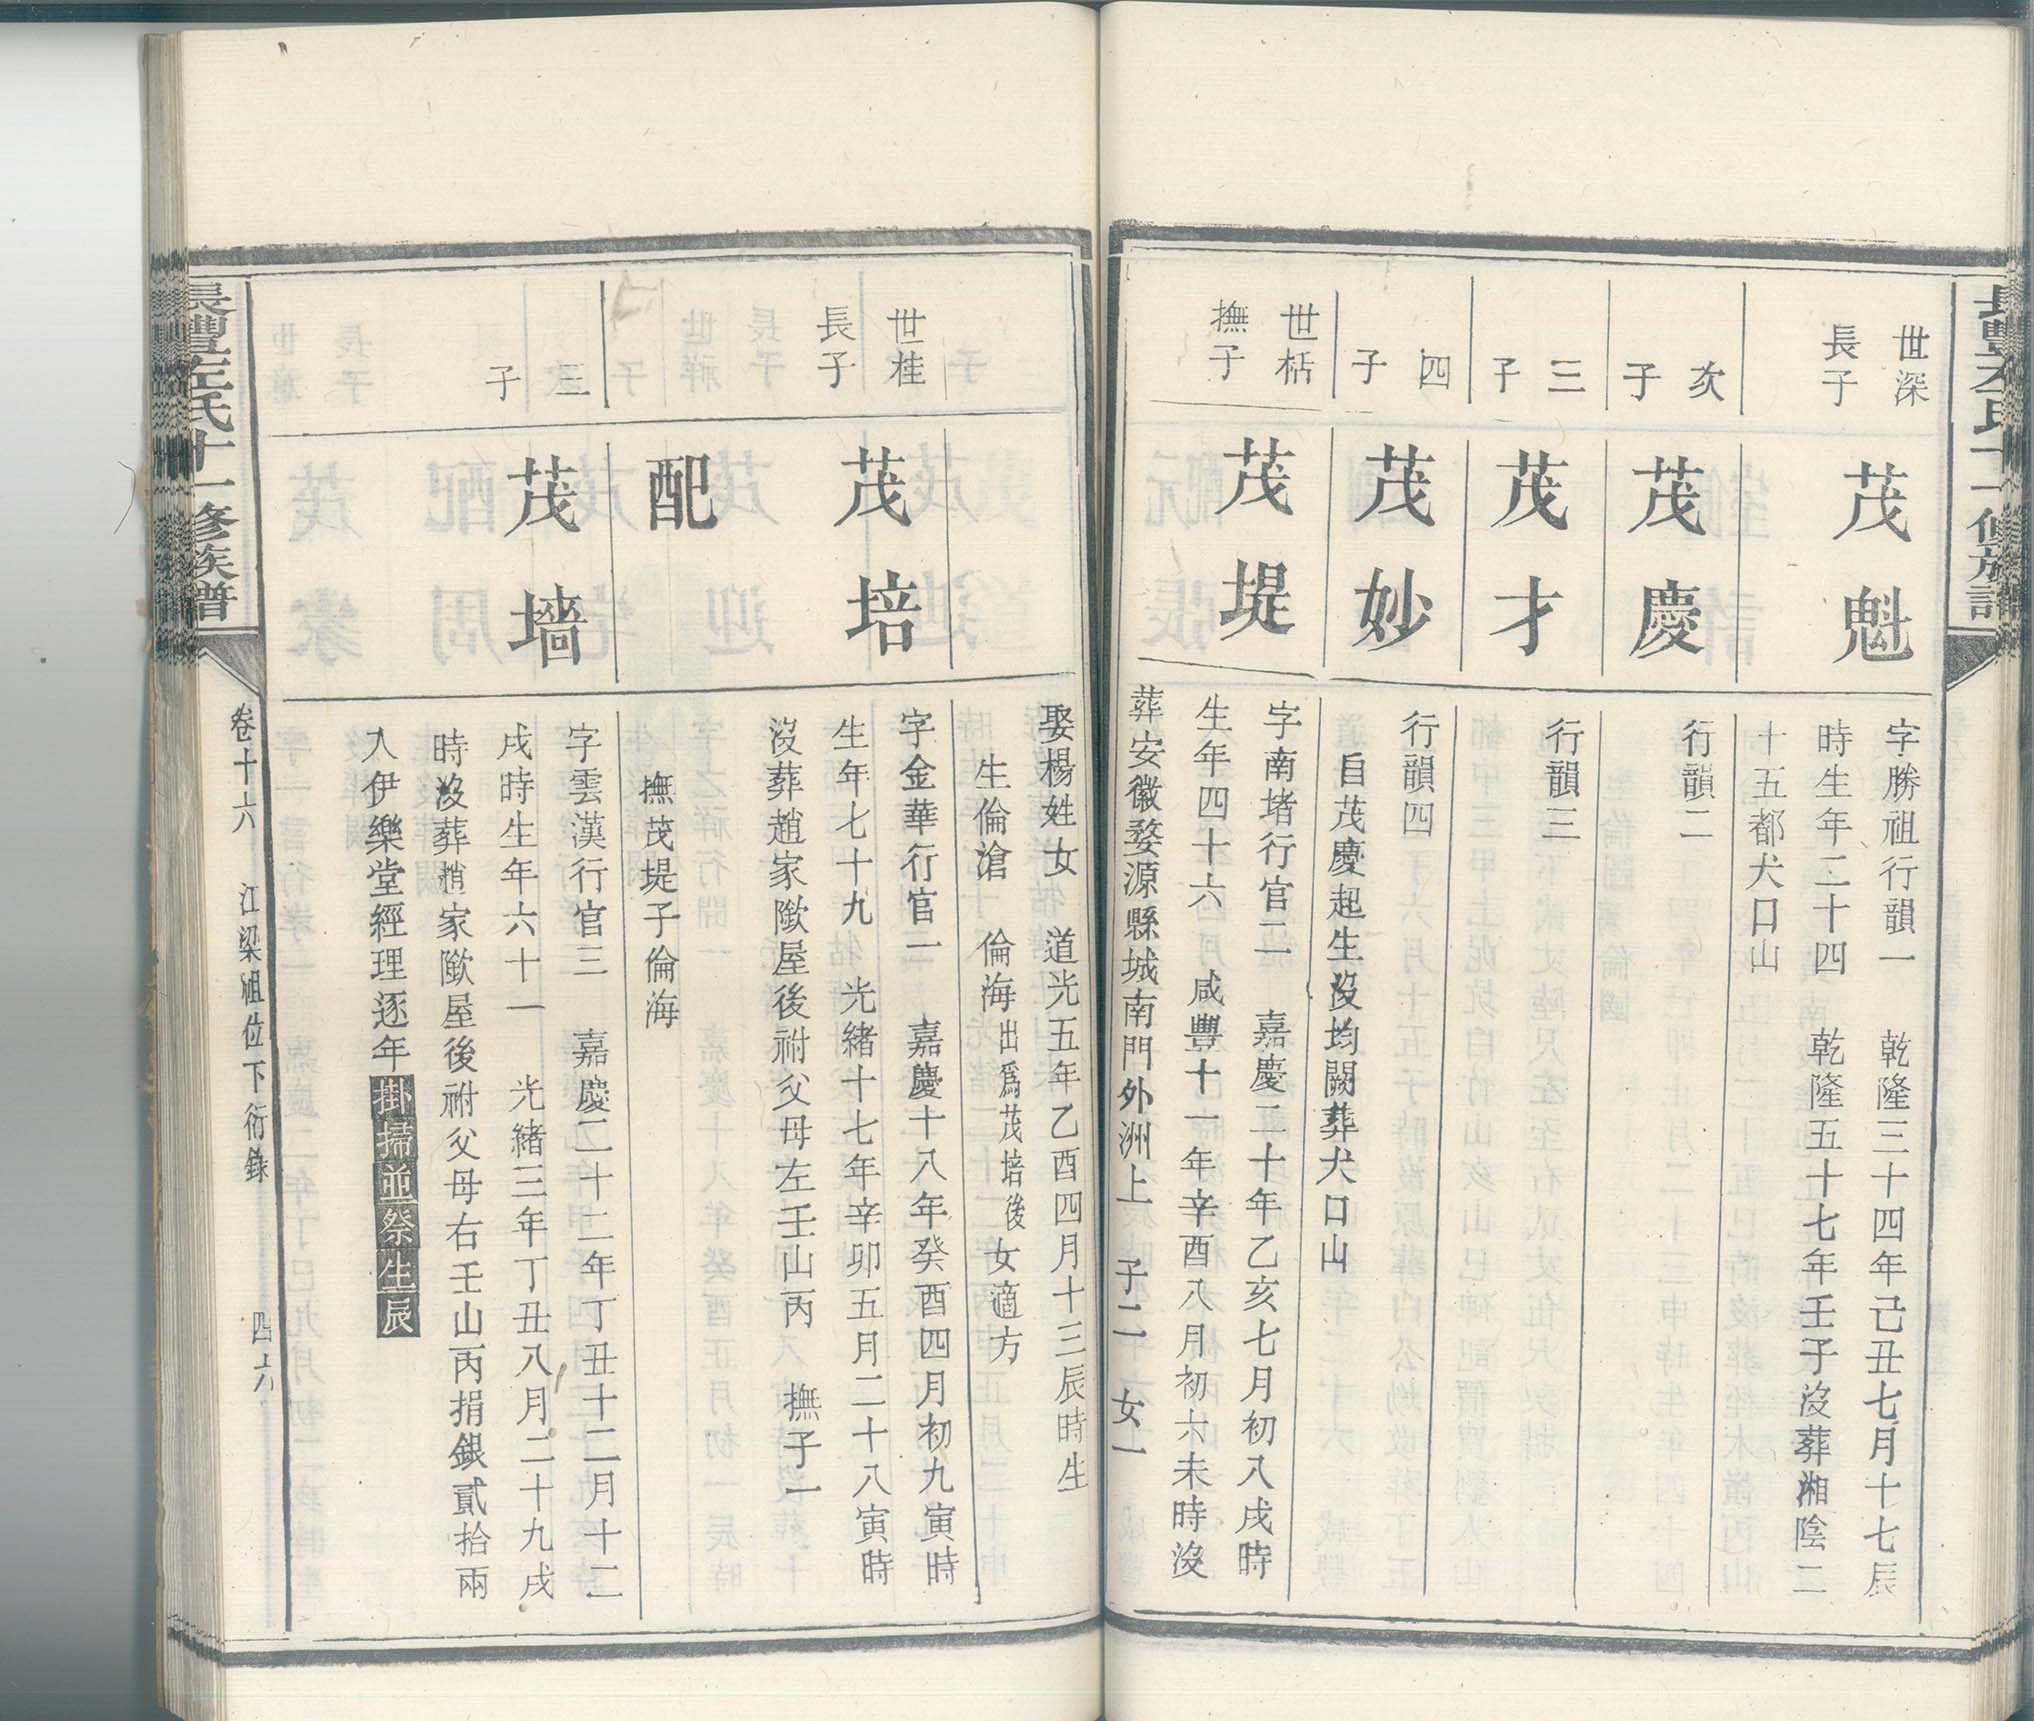 世深
長子
茂魁
字勝祖行韻一　乾隆三十四年己丑七月十七辰
時生年二十四　乾隆五十七年壬子沒葬湘陰二
十五都犬口山
次
子
茂慶
行韻二
三
子
茂才
行韻三
四
子
茂妙
行韻四
自茂慶起生沒均闕葬犬口山
世栝
撫子
茂堤
字南堵行官二　嘉慶二十年乙亥七月初八戌時
生年四十六　咸豐十一年辛酉八月初六未時沒
葬安徽婺源縣城南門外洲上　子二　女一
娶楊姓女　道光五年乙酉四月十三辰時生
生倫滄　倫海出為茂培後女適方
世桂
長子
茂培
字金華行官一　嘉慶十八年癸酉四月初九寅時
生年七十九　光緒十七年辛卯五月二十八寅時
沒葬趙家歘屋後祔父母左壬山丙　撫子一
配
撫茂堤子倫海
三
子
茂墻
字雲漢行官三　嘉慶二十二年丁丑十二月十二
戌時生年六十一　光緒三年丁丑八月二十九戌
時沒葬趙家歘屋後祔父母右壬山丙捐銀貳拾兩
入伊樂堂經理逐年掛掃並祭生辰
長豐左氏十一修族譜
卷十六　江梁祖位下衍錄　四十六